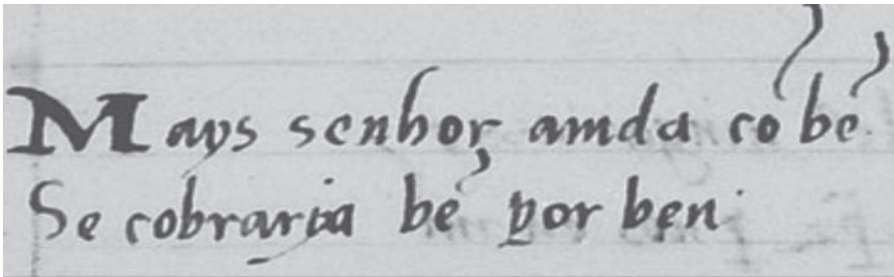 Mays senhor amda cõ bẽ
Se cobraria bẽ por ben